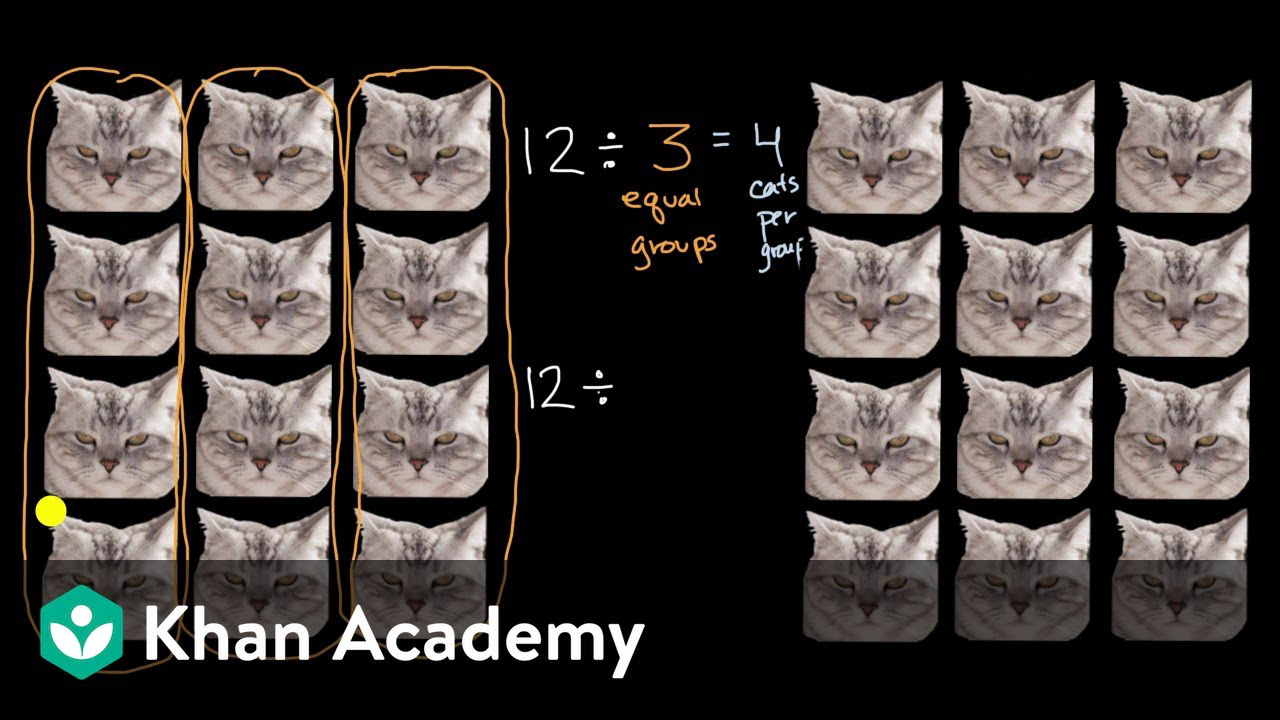 12 ÷ 3 = 4
equal
groups
cats
per
group
12 ÷
Khan Academy